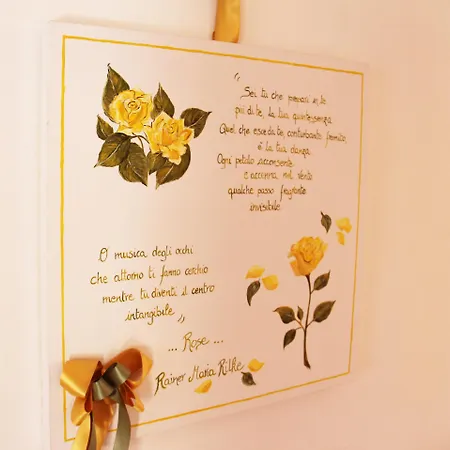 "Sei tu che provochi in te
più di te, la tua quintessenza.
Quel che esce da te, conturbante fremito,
è la tua danza.
Ogni petalo acconsente
e accenna nel vento
qualche passo fragrante
invisibile.
O musica degli occhi
che attorno ti fanno cerchio
mentre tu diventi il centro
intangibile"
... Rose ...
Rainer Maria Rilke